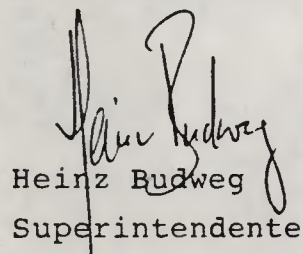 Heinz Budweg
Heinz Budweg
Superintendente